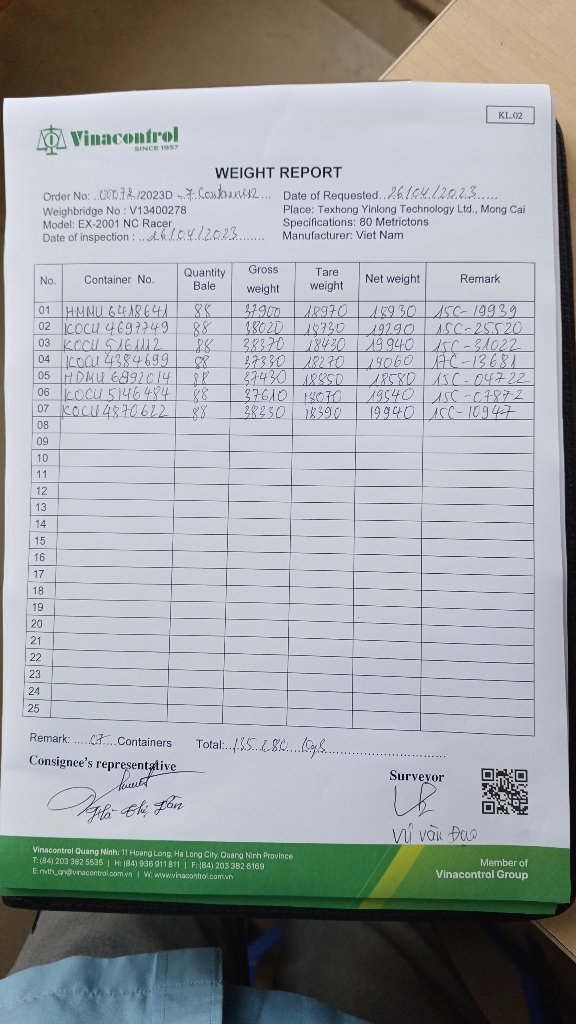 KL.02
Vinacontrol
SINCE 1957
WEIGHT REPORT
Order No: /2023D - 7 Container
Date of Requested 26/04/2023
Weighbridge No : V13400278
Place: Texhong Yinlong Technology Ltd., Mong Cai
Model: EX-2001 NC Racer
Specifications: 80 Metrictons
Date of inspection : 26/04/2023
Manufacturer: Viet Nam
No. Container No. Quantity Bale Gross weight Tare weight Net weight Remark
01 HMMU 6418641 88 37900 18970 18930 15C-19939
02 KOCU 4697749 88 38020 18730 19290 15C-25520
03 KOCU 88 38370 18430 19940 15C-31022
04 KOCU 4384699 88 37330 18270 19060 17C-13681
05 HDMU 6892014 88 37430 18850 18580 15C-04722
06 KOCU 5146484 88 37610 18070 19540 15C-07872
07 KOCU 4870622 88 38330 18390 19940 15C-10947
08
09
10
11
12
13
14
15
16
17
18
19
20
21
22
23
24
25
Remark: 07 Containers Total: 135 280 Kgs
Consignee's representative
Surveyor
Vũ Văn Đạo
Vinacontrol Quang Ninh: 11 Hoang Long, Ha Long City, Quang Ninh Province
T: (84) 203 382 5535 | H: (84) 936 911 811 | F: (84) 203 382 6169
E: nvth_qn@vinacontrol.com.vn | W: www.vinacontrol.com.vn
Member of
Vinacontrol Group